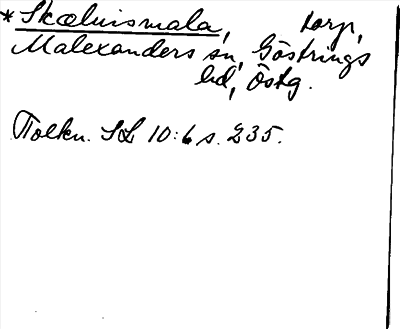 *Skæluismala, torp,
Malexanders sn, Göstrings
hd, Östg.
Tolkn. SL 10:6 s. 235.